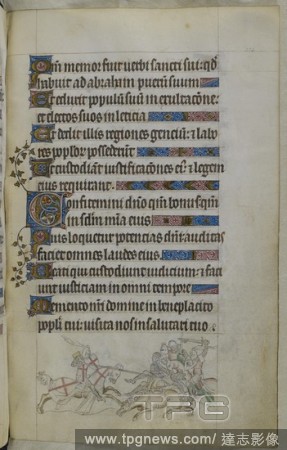 Qm̄ memor fuit verbi sancti sui: qd̄
habuit ad abraham puerū suum
Et eduxit populū suū in exultacōne:
et electos suos in leticia
Et dedit illis regiones genciū: et labo
res poploꝝ possederūt
Et custodiant iustificacōnes eiꝰ: et legem
eius requirant.
Confitemini dn̄o qm̄ bonus: qm̄
in sclm̄ mīa eius
Quis loquetur potencias dn̄i: auditas
faciet omnes laudes eius
Beati qui custodiunt iudicium: et faci
unt iusticiam in omni tempore
Memento nr̄i domine in beneplacito
popli tui: visita nos in salutari tuo.
TPG
www.tpgnews.com / 達志影像